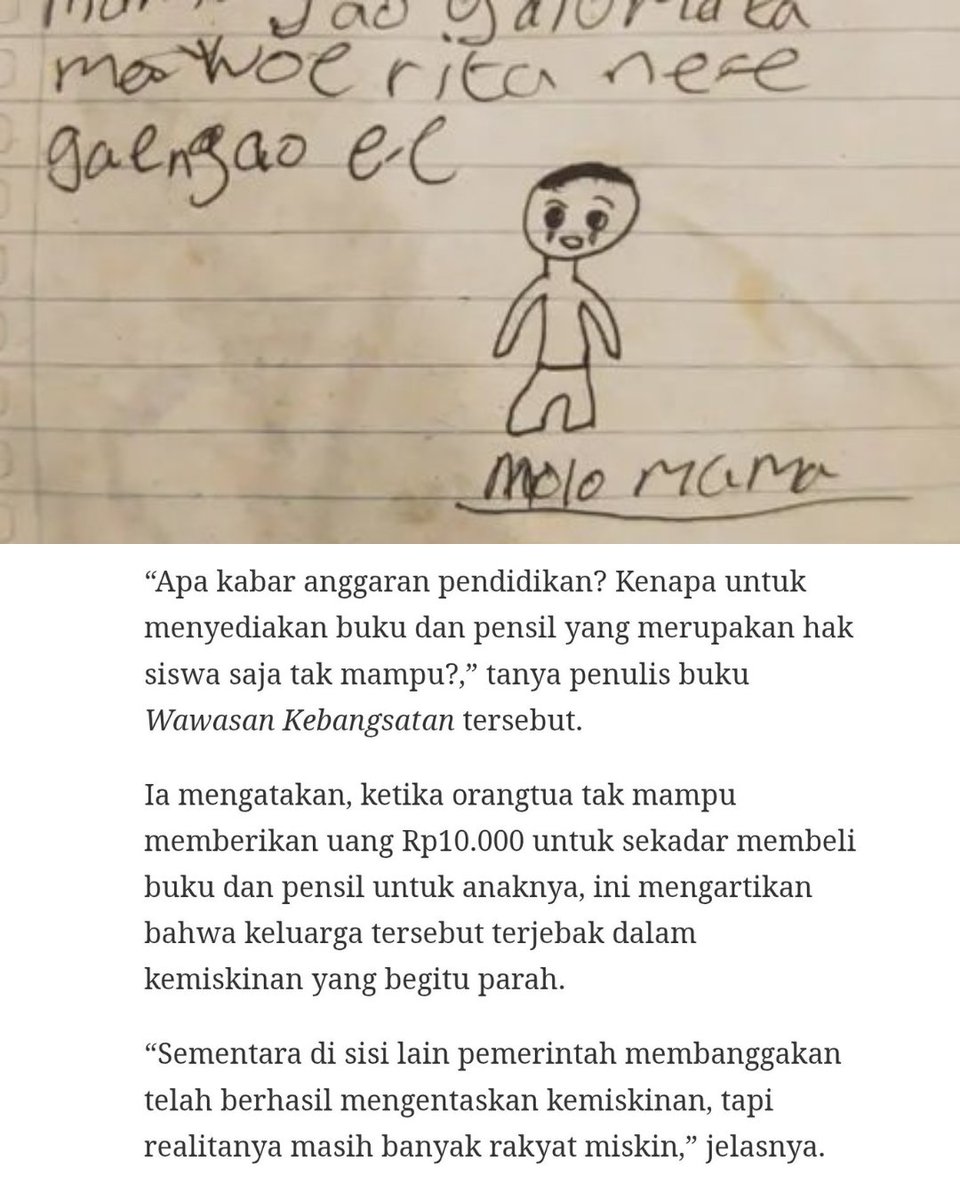 woe rita nee
galngao ee
molo mama
“Apa kabar anggaran pendidikan? Kenapa untuk
menyediakan buku dan pensil yang merupakan hak
siswa saja tak mampu?,” tanya penulis buku
Wawasan Kebangsatan tersebut.
Ia mengatakan, ketika orangtua tak mampu
memberikan uang Rp10.000 untuk sekadar membeli
buku dan pensil untuk anaknya, ini mengartikan
bahwa keluarga tersebut terjebak dalam
kemiskinan yang begitu parah.
“Sementara di sisi lain pemerintah membanggakan
telah berhasil mengentaskan kemiskinan, tapi
realitanya masih banyak rakyat miskin,” jelasnya.